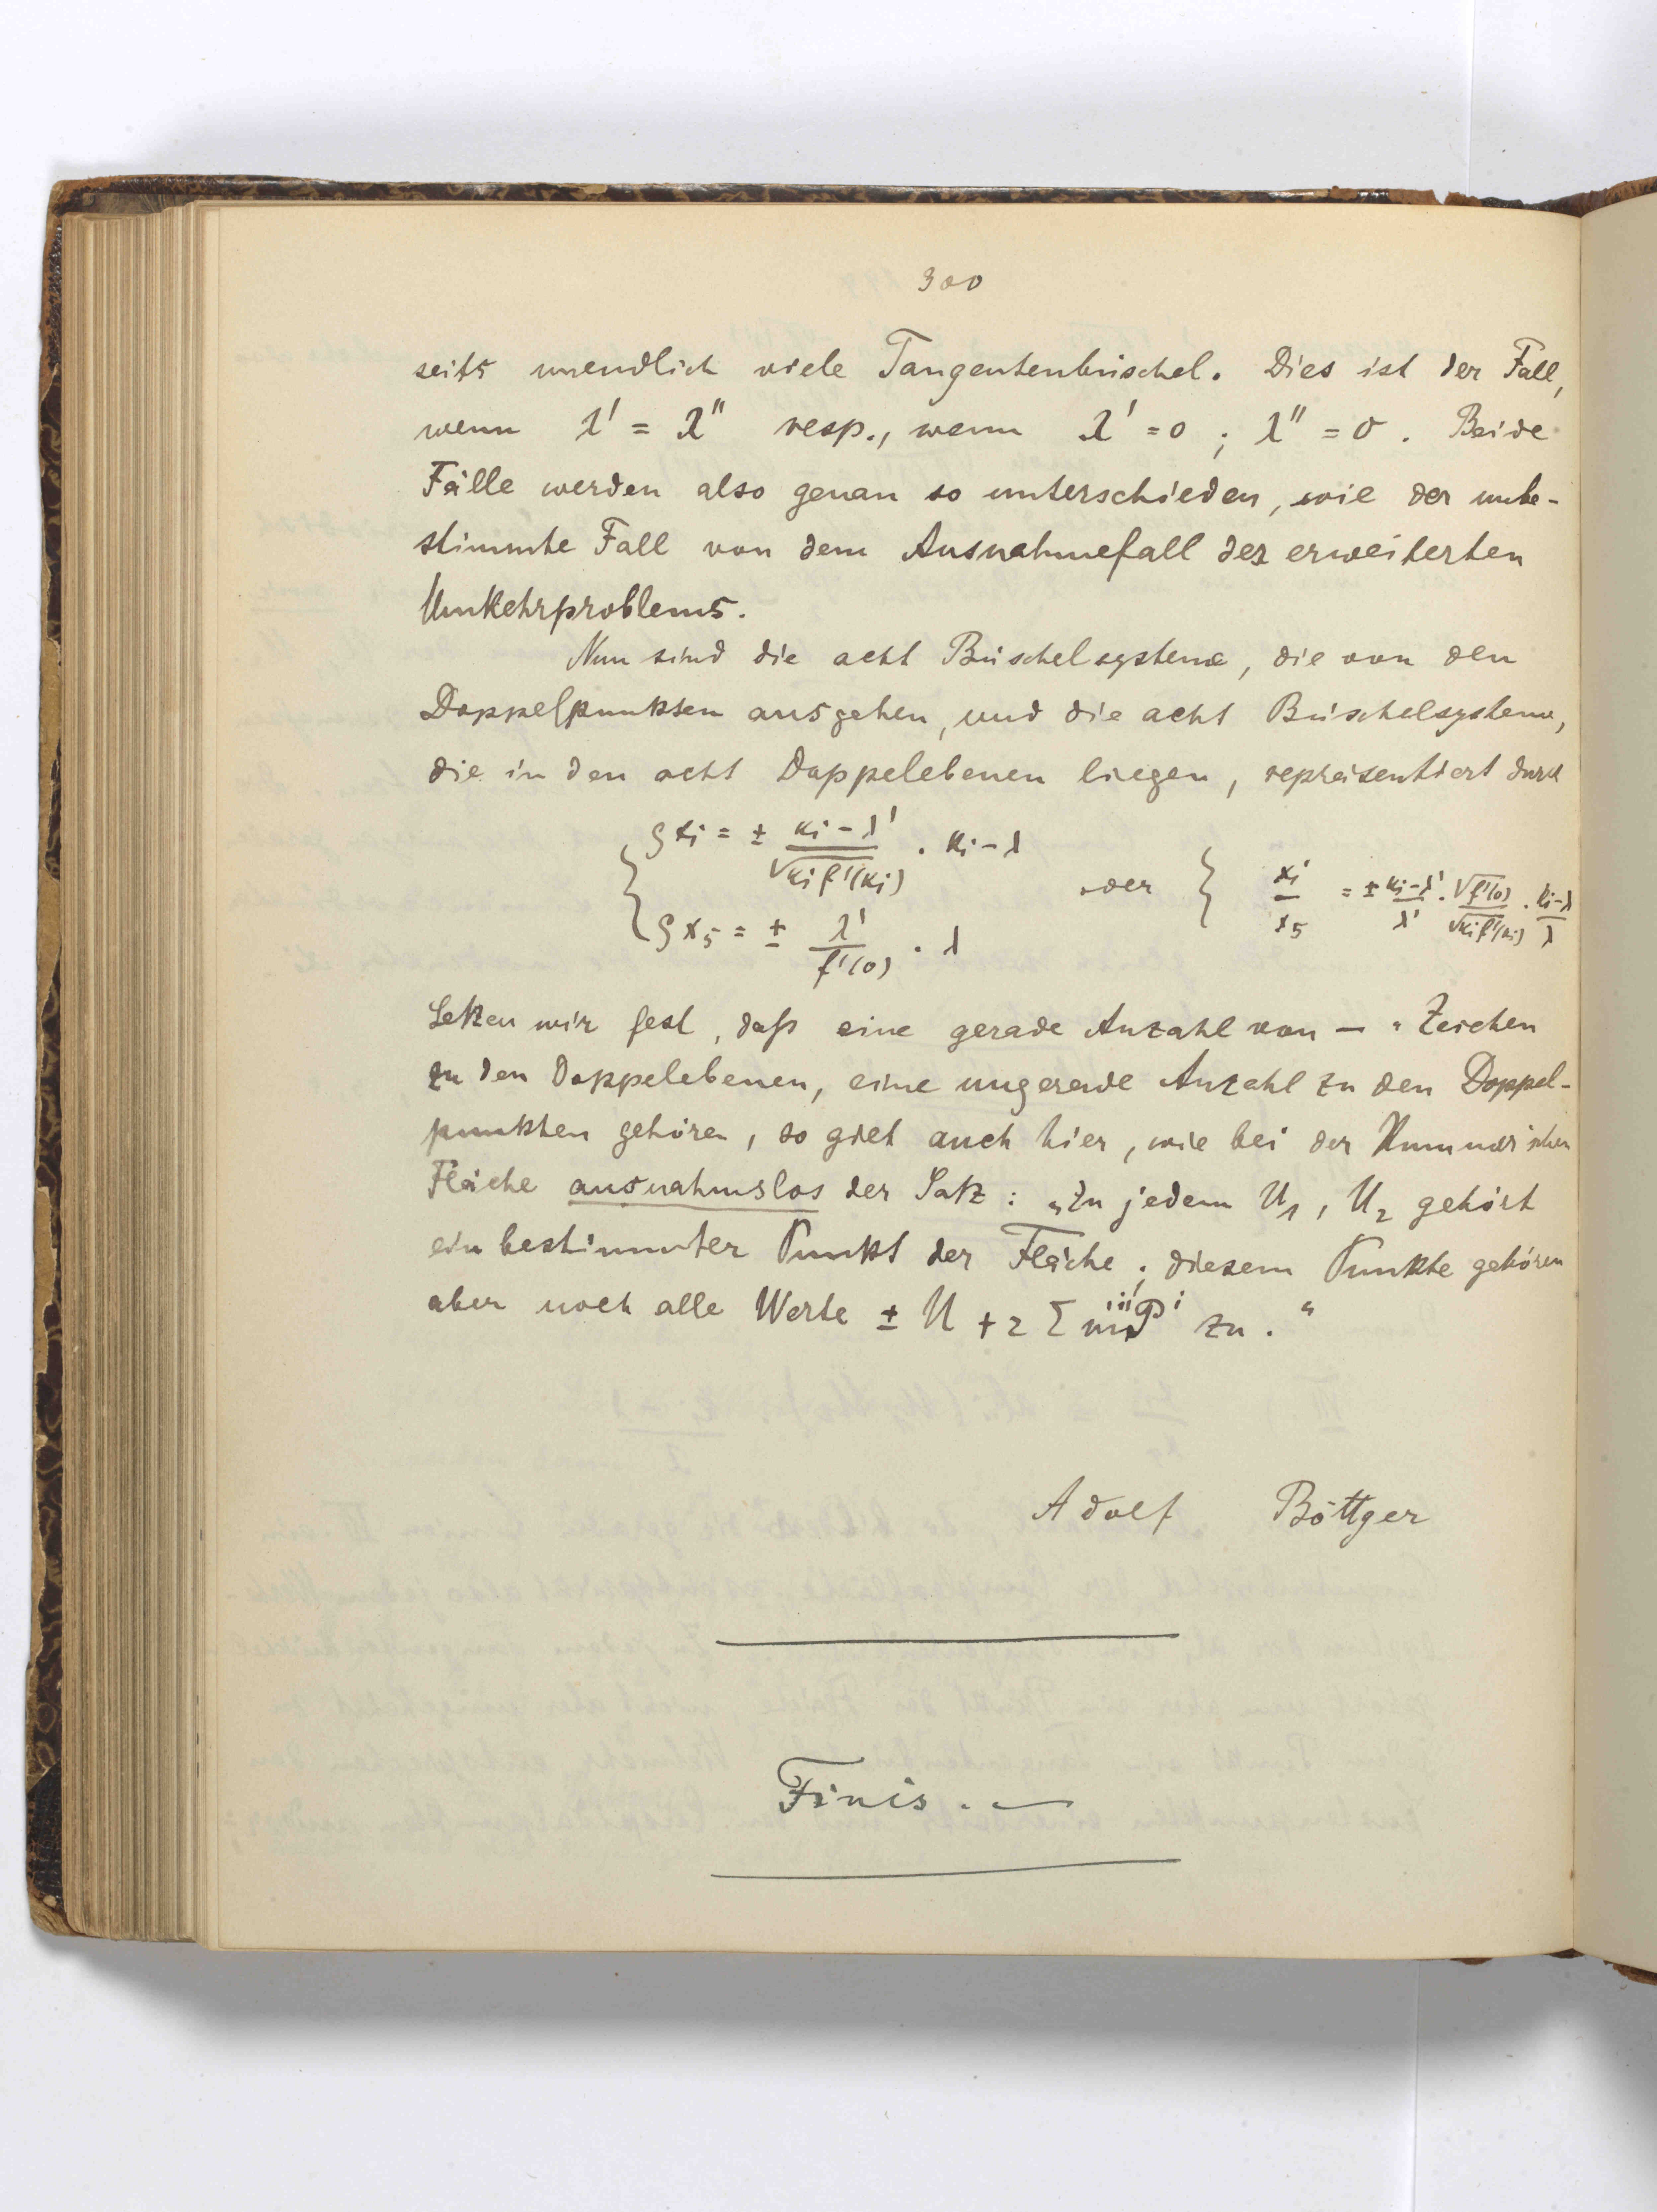 300
seits unendlich viele Tangentenbüschel. Dies ist der Fall,
wenn λ' = λ'' resp., wenn λ' = 0 ; λ'' = 0 . Beide
Fälle werden also genau so unterschieden, wie der unbe-
stimmte Fall von dem Ausnahmefall des erweiterten
Umkehrproblems.
Nun sind die acht Büschelsysteme, die von den
Doppelpunkten ausgehen, und die acht Büschelsysteme,
die in den acht Doppelebenen liegen, repräsentiert durch
{ ρxi = ± (κi − λ') / √(κi f'(κi)) · κi − λ
ρx5 = ± λ' / f'(0) · λ
oder { xi / x5 = ± (κi − λ') / λ' · √f'(0) / √(κi f'(κi)) · (κi − λ) / λ
Setzen wir fest, daß eine gerade Anzahl von — " Zeichen
zu den Doppelebenen, eine ungerade Anzahl zu den Doppel-
punkten gehören, so gielt auch hier, wie bei der Kummer'schen
Fläche ausnahmslos der Satz : „Zu jedem U1, U2 gehört
ein bestimmter Punkt der Fläche ; diesem Punkte gehören
aber noch alle Werte ± U + 2 Σ zu . "
Adolf Böttger
Finis . —